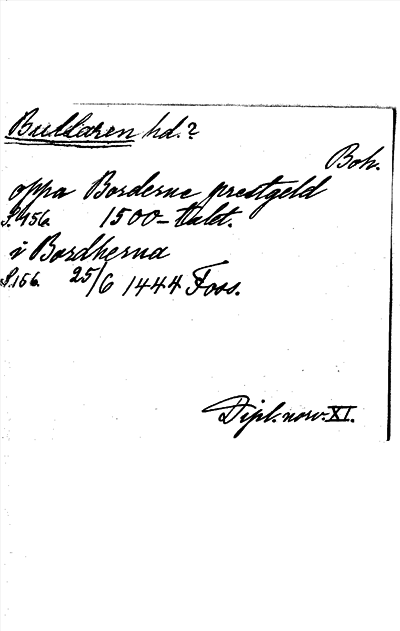 Bullaren hd.?
Boh.
oppa Borderne prestgeld
S. 956. 1500-talet.
i Bordherna
S. 156. 25/6 1444 Foss.
Dipl. norv. XI.